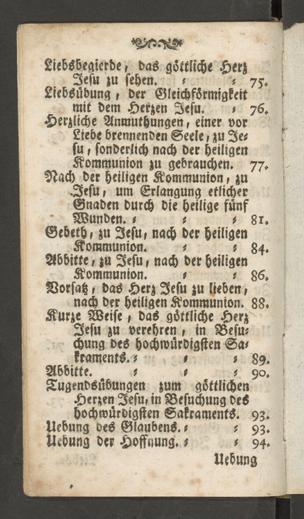 Liebsbegierde, das göttliche Herz
Jesu zu sehen. ⸗ ⸗ 75.
Liebsübung, der Gleichförmigkeit
mit dem Herzen Jesu. ⸗ 76.
Herzliche Anmuthungen, einer vor
Liebe brennenden Seele, zu Je⸗
su, sonderlich nach der heiligen
Kommunion zu gebrauchen. 77.
Nach der heiligen Kommunion, zu
Jesu, um Erlangung etlicher
Gnaden durch die heilige fünf
Wunden. ⸗ ⸗ ⸗ 81.
Gebeth, zu Jesu, nach der heiligen
Kommunion. ⸗ ⸗ 84.
Abbitte, zu Jesu, nach der heiligen
Kommunion. ⸗ ⸗ 86.
Vorsatz, das Herz Jesu zu lieben,
nach der heiligen Kommunion. 88.
Kurze Weise, das göttliche Herz
Jesu zu verehren, in Besu⸗
chung des hochwürdigsten Sa⸗
kraments. ⸗ ⸗ ⸗ 89.
Abbitte. ⸗ ⸗ ⸗ 90.
Tugendsübungen zum göttlichen
Herzen Jesu, in Besuchung des
hochwürdigsten Sakraments. 93.
Uebung des Glaubens. ⸗ ⸗ 93.
Uebung der Hoffnung. ⸗ ⸗ 94.
Uebung